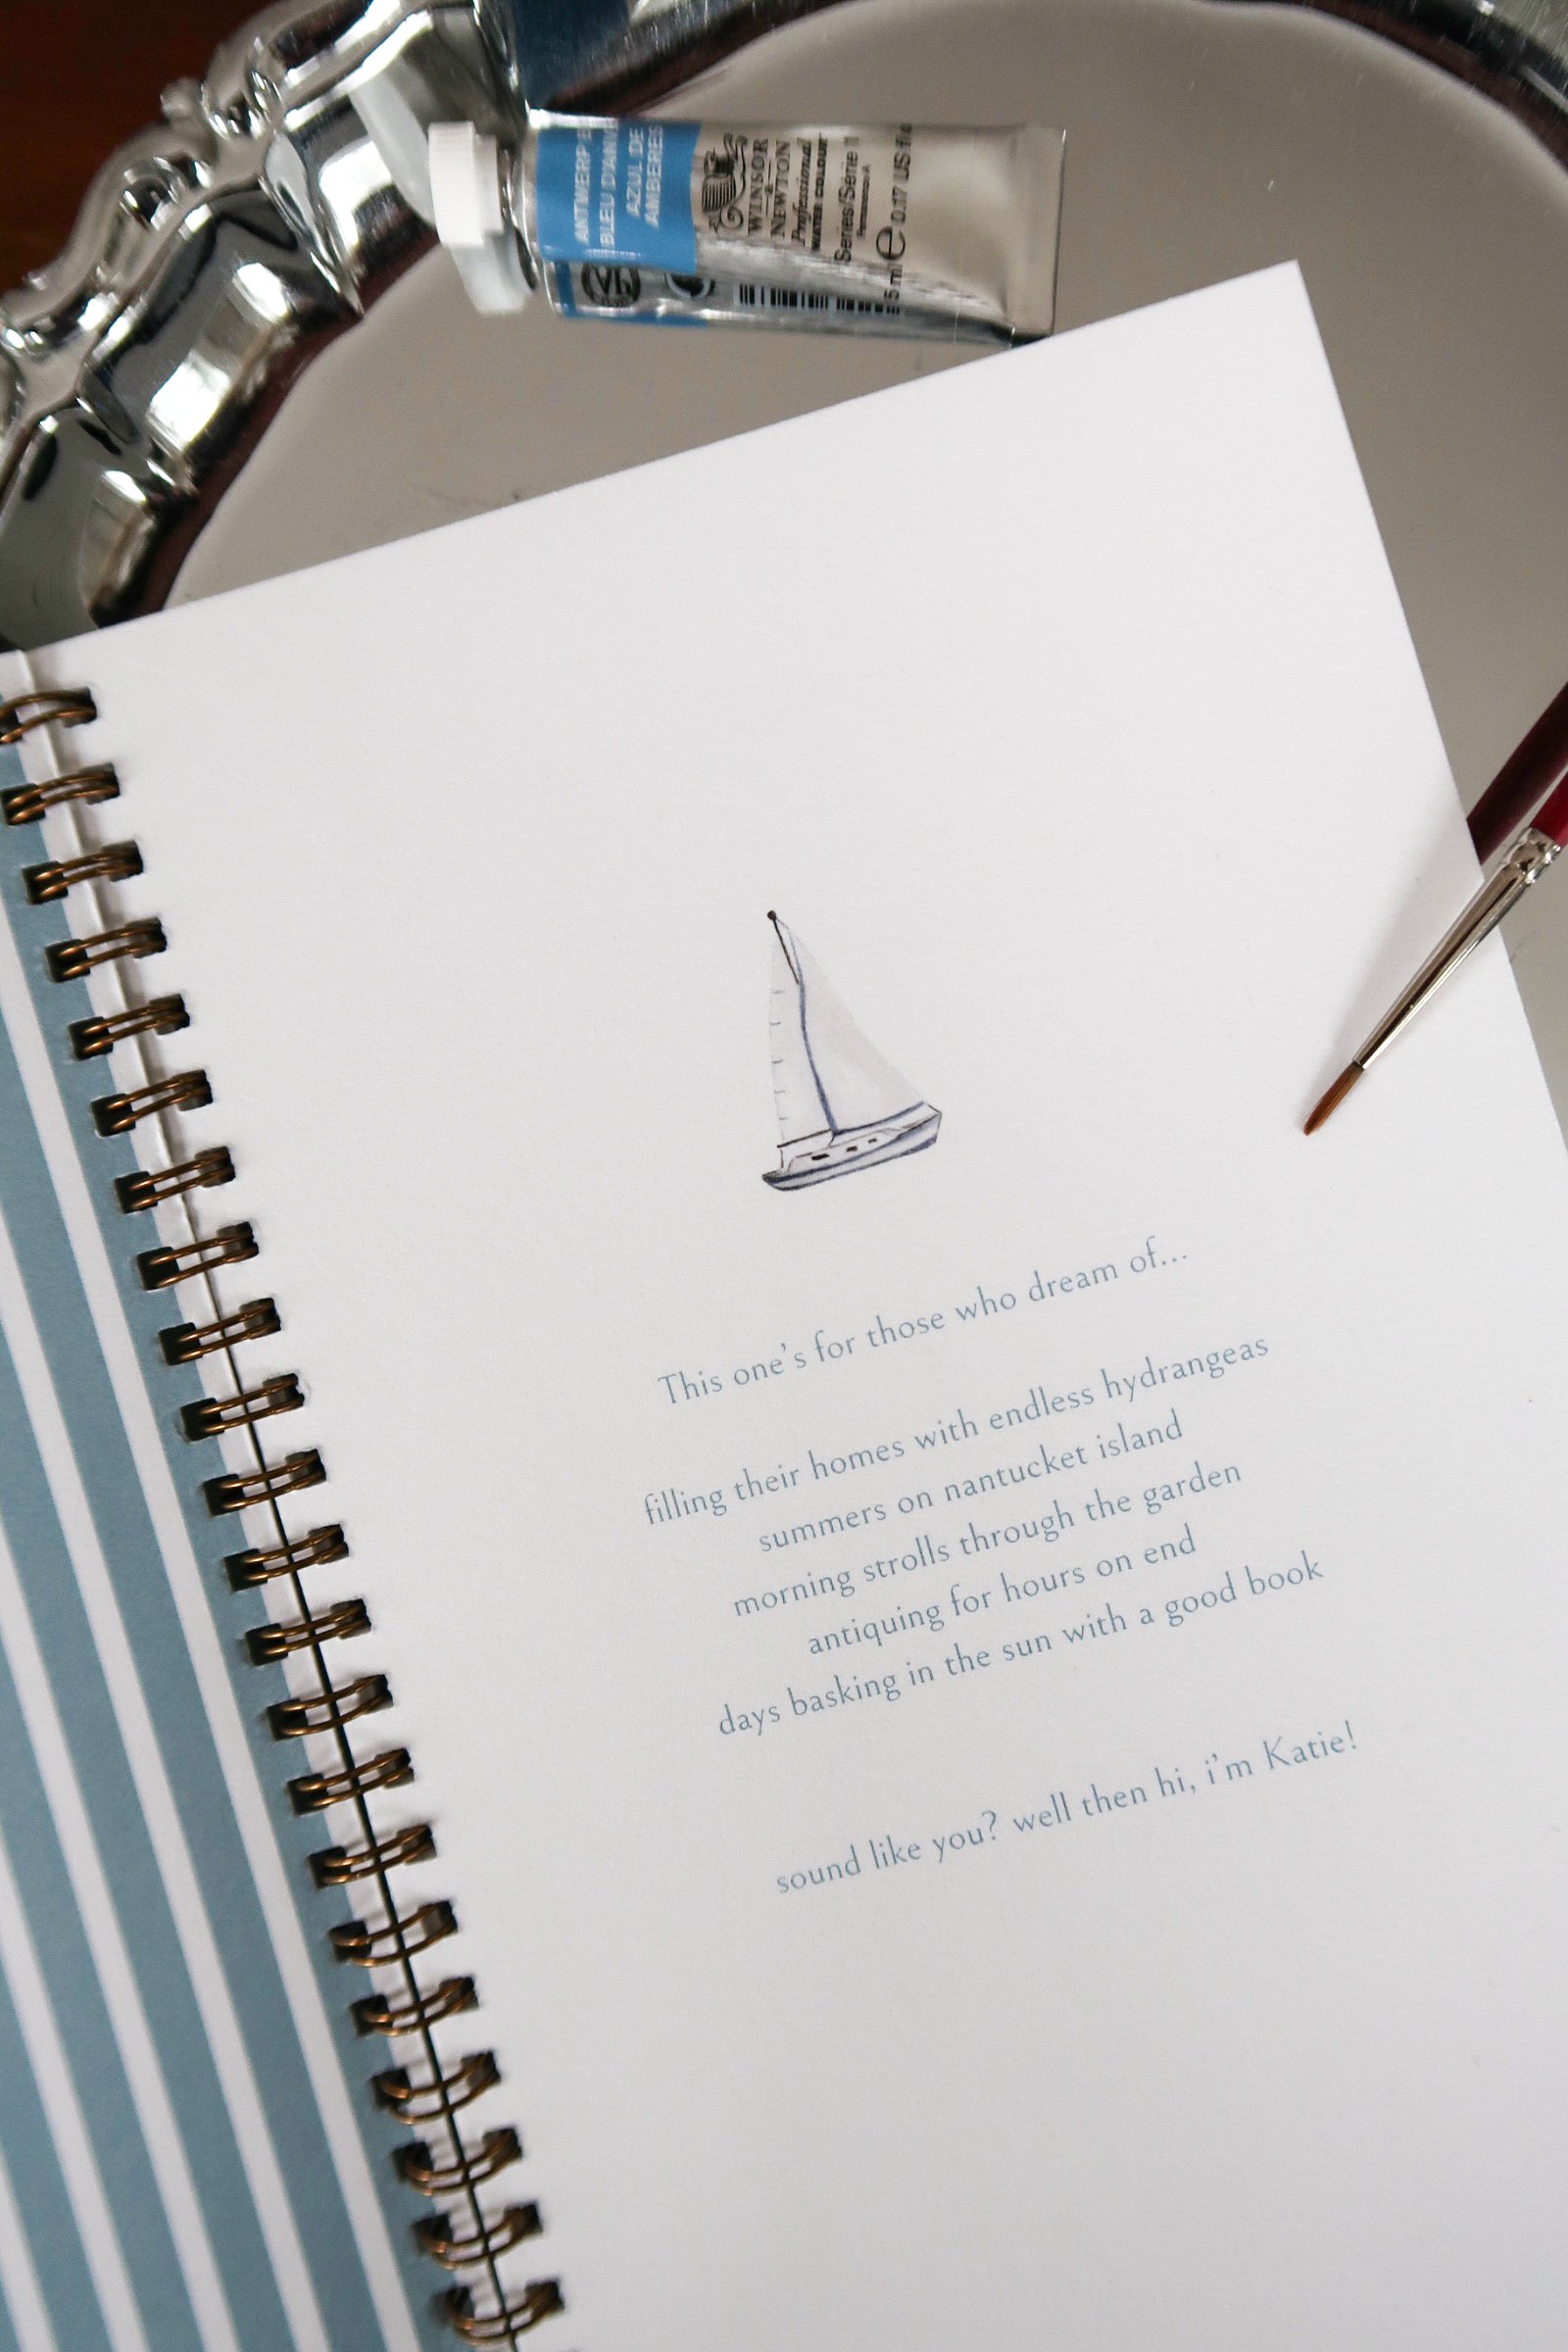 ANTWERP
BLEU D'ANV
AZUL DE
AMBERES
WINSOR
&
NEWTON
Professional
WATER COLOUR
Series/Série 1
5 ml e 0.17 US fl o
This one's for those who dream of...
filling their homes with endless hydrangeas
summers on nantucket island
morning strolls through the garden
antiquing for hours on end
days basking in the sun with a good book
sound like you? well then hi, i'm Katie!